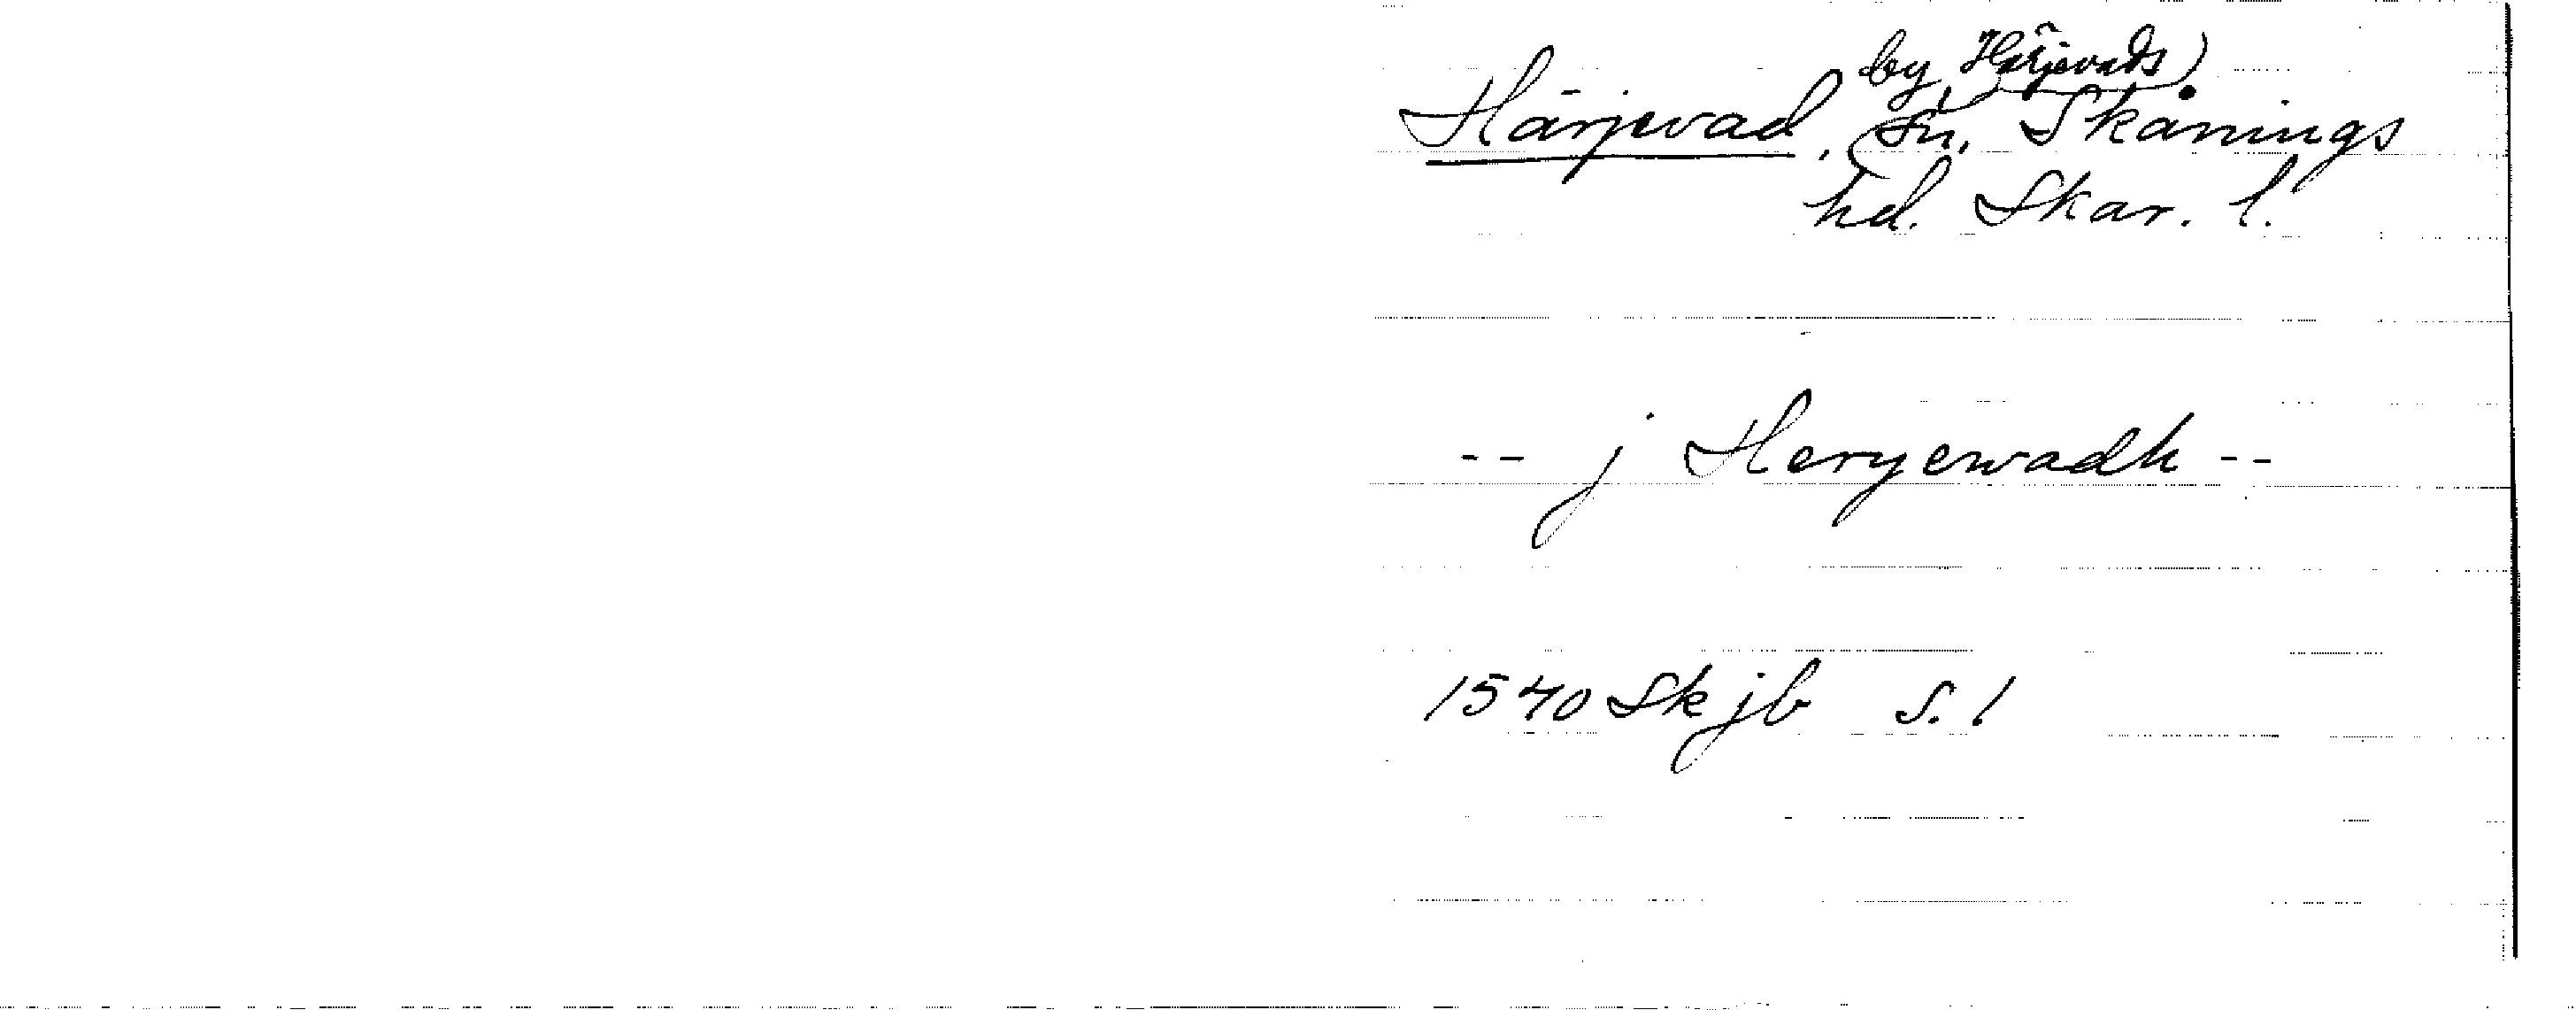 by Härjevads)
Härjevad, (sn, Skånings
hd. Skar. l.
-- j Heryewadh --
1540 Skjb S. 1